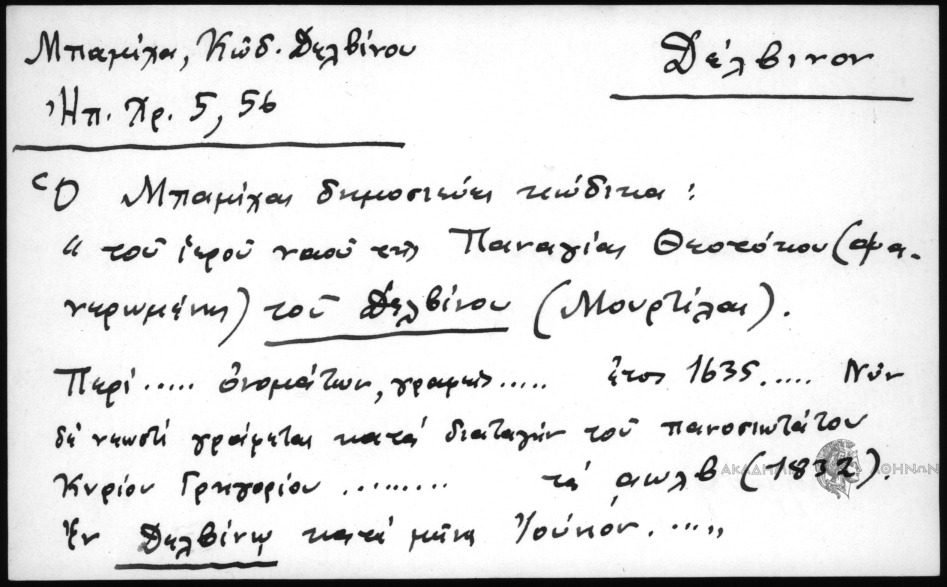 Μπαμίχα, Κῶδ. Δελβίνου
Δέλβινον
Ἠπ. Χρ. 5, 56
Ὁ Μπαμίχας δημοσιεύει κώδικα:
"τοῦ ἱεροῦ ναοῦ τῆς Παναγίας Θεοτόκου (φα-
νερωμένης) τοῦ Δελβίνου (Μουρτίλας).
Περί ..... ὀνομάτων, γραφείς ..... ἔτος 1635 ..... Νῦν
δέ νεωστί γράφεται κατά διαταγήν τοῦ πανοσιωτάτου
Κυρίου Γρηγορίου ......... τά αωλβ (1832).
Ἐν Δελβίνῳ κατά μῆνα ....."
ΑΚΑΔΗΜΙΑ ΑΘΗΝΩΝ